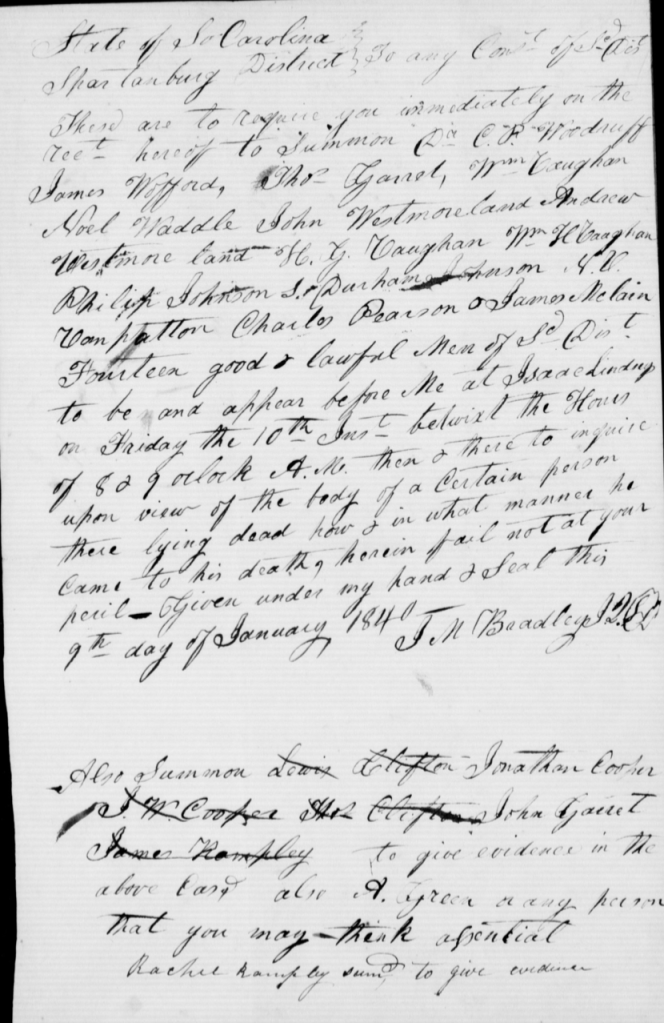 State of So Carolina
Spartanburg District } To any Const. of Sd Dis
These are to require you immediately on the
rect. hereof to Summon Dr C. P. Woodruff
James Wofford, Thos Garret, Wm Vaughan
Noel Waddle John Westmoreland Andrew
Westmore land H. G. Vaughan Wm H Vaughan
Philip Johnson Sr Durham Johnson N. V.
Vanpatton Charles Pearson & James Mclain
Fourteen good & lawful Men of Sd Dist.
to be and appear before Me at Isaac Lindsey
on Friday the 10th Inst. betwixt the Hours
of 8 & 9 oclock A.M. then & there to inquire
upon view of the body of a Certain person
there lying dead how & in what manner he
Came to his death, herein fail not at your
peril — Given under my hand & Seal this
9th day of January 1840 J M Bradley J Q
Also Summon Lewis Clifton Jonathan Cooper
J. W. Cooper Thos Clifton John Garret
James Kampley to give evidence in the
above Case also A. Green or any person
that you may think assential
Rachel Kampley sumd to give evidence